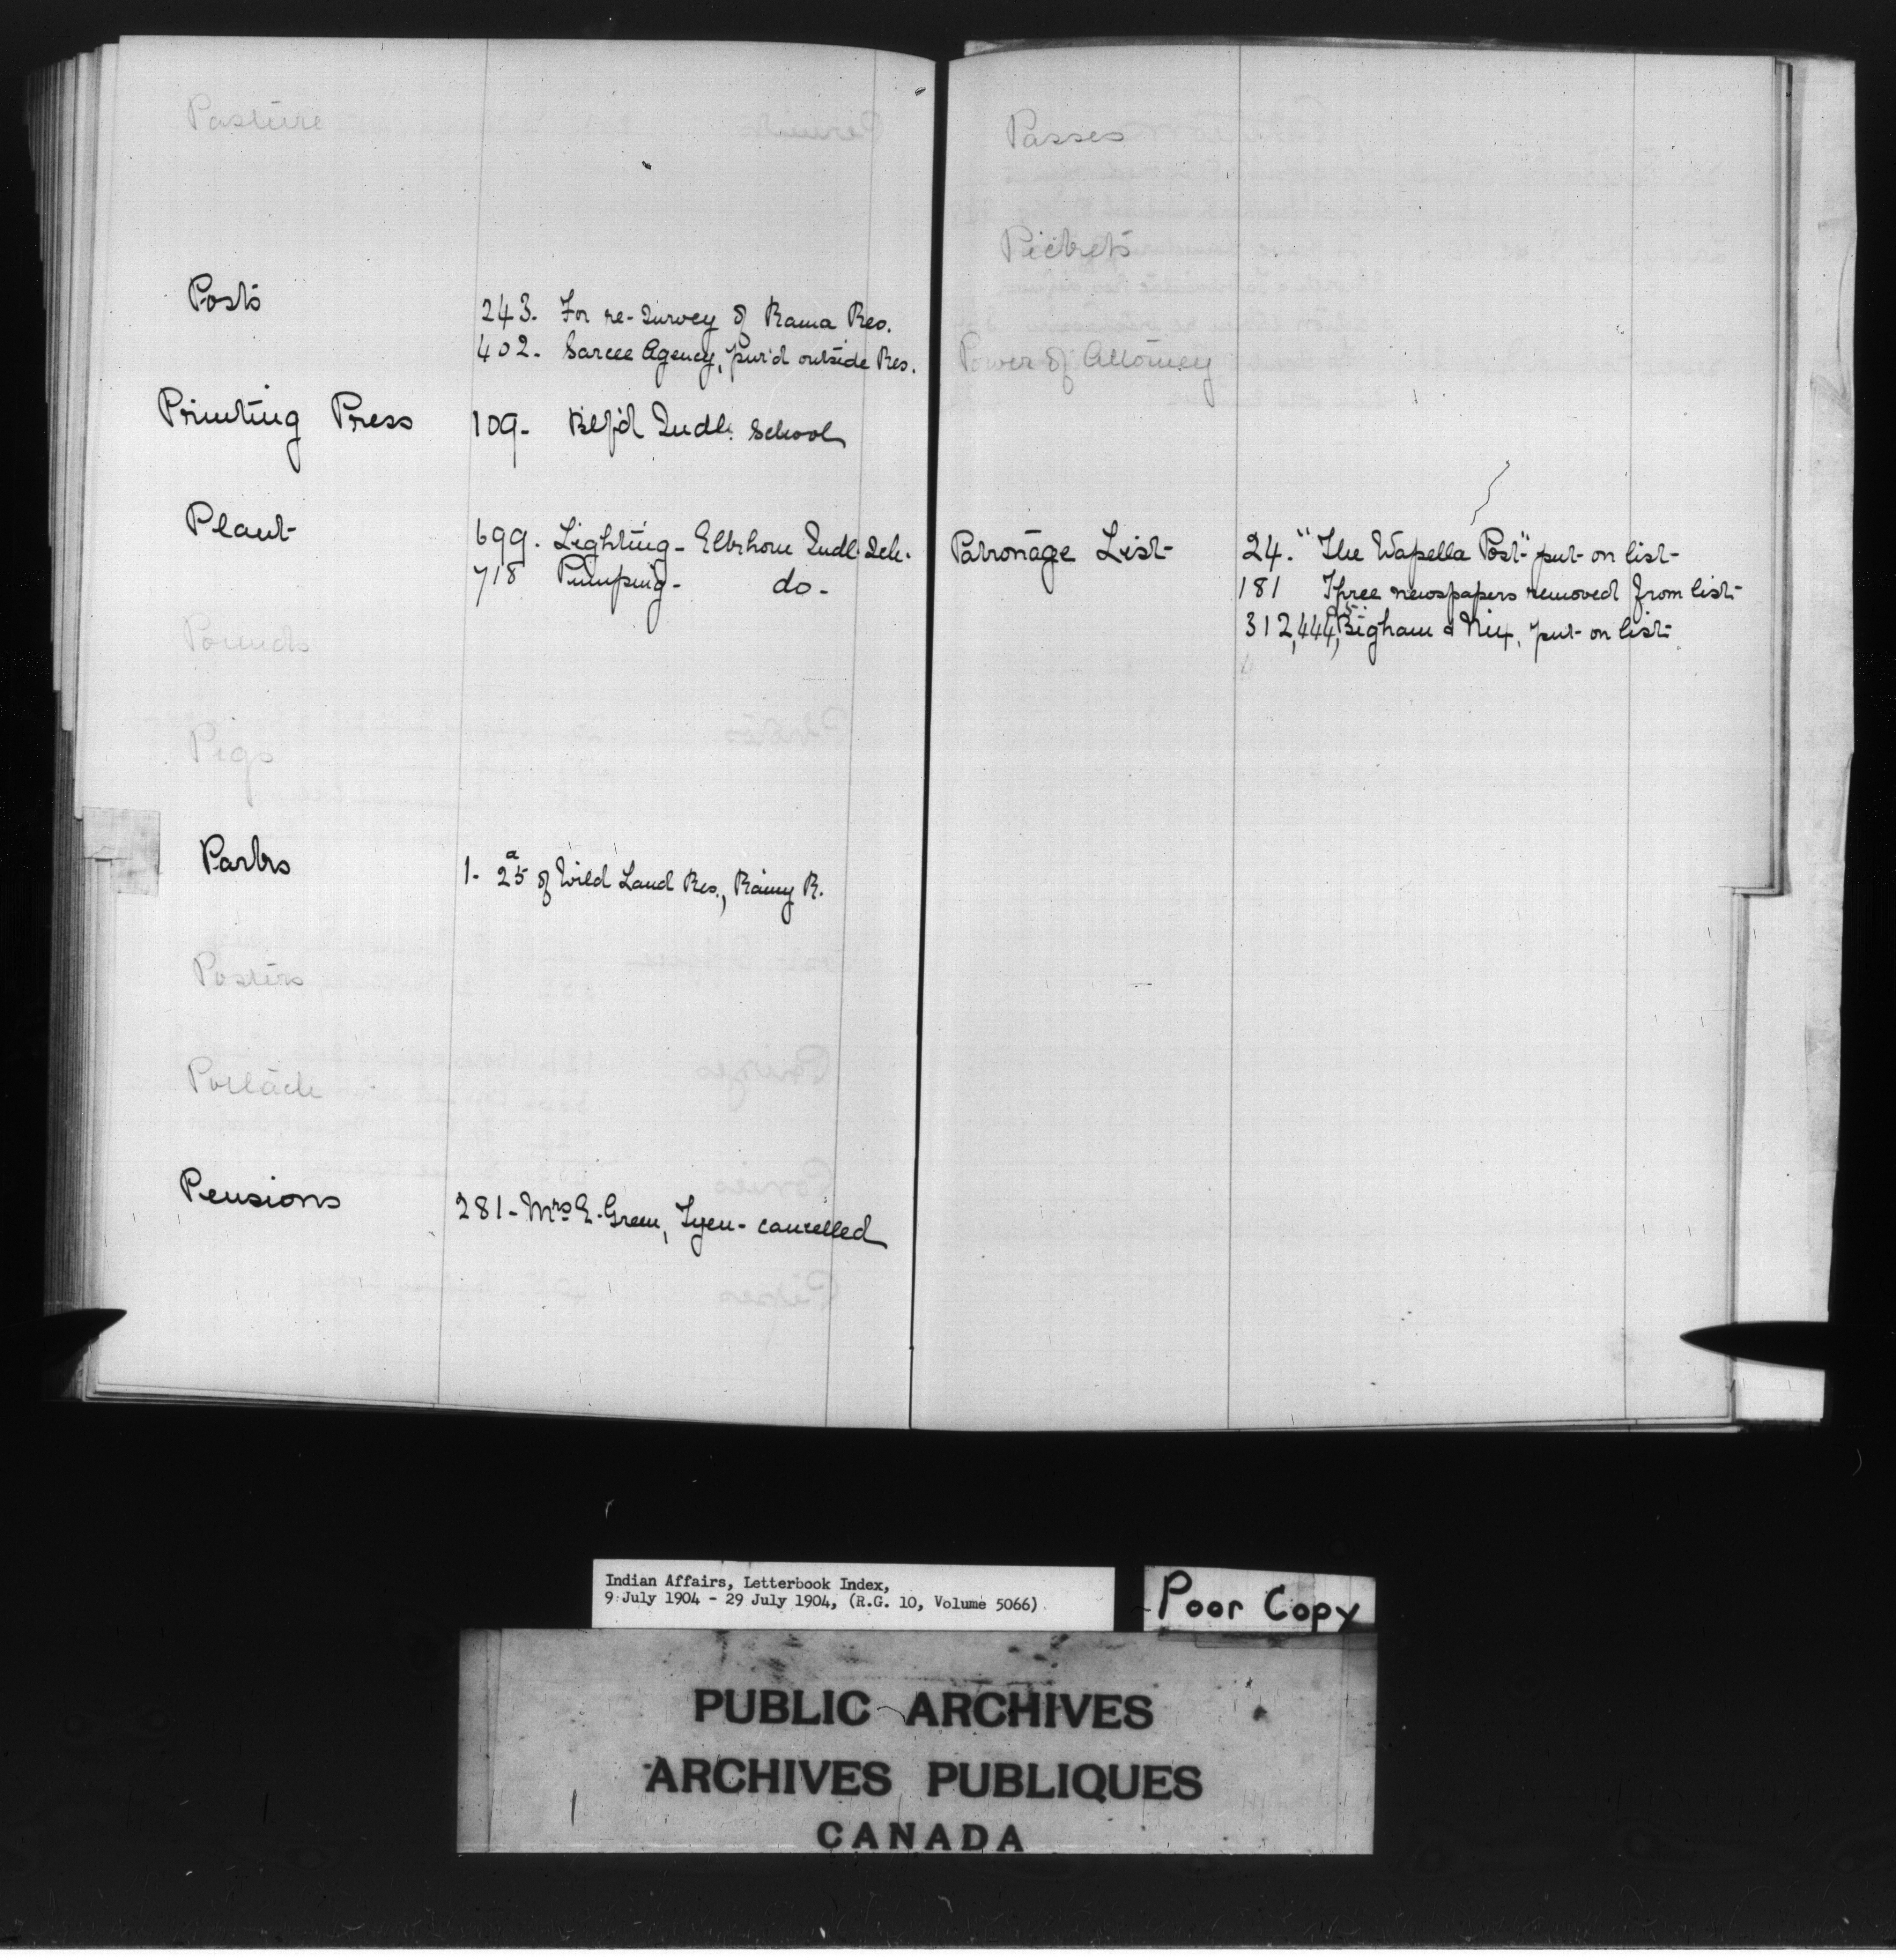 Pasture
Posts 243. For re-survey of Rama Res.
402. Sarcee Agency, pur'd outside Res.
Printing Press 109- Btf'd Indl. School
Plant 699. Lighting- Elkhorn Indl. Sch.
718 Pumping- do-
Pounds
Pigs
Parks 1- 25a of Wild Land Res., Rainy R.
Posters
Potlach
Pensions 281- Mrs E. Green, Tyen- cancelled
Passes
Pickets
Power of Attorney
Patronage List 24. "The Wapella Post" put on list-
181 Three newspapers removed from list-
312, 444, Bigham & Nix, put on list-
Indian Affairs, Letterbook Index,
9 July 1904 - 29 July 1904, (R.G. 10, Volume 5066)
Poor Copy
PUBLIC ARCHIVES
ARCHIVES PUBLIQUES
CANADA